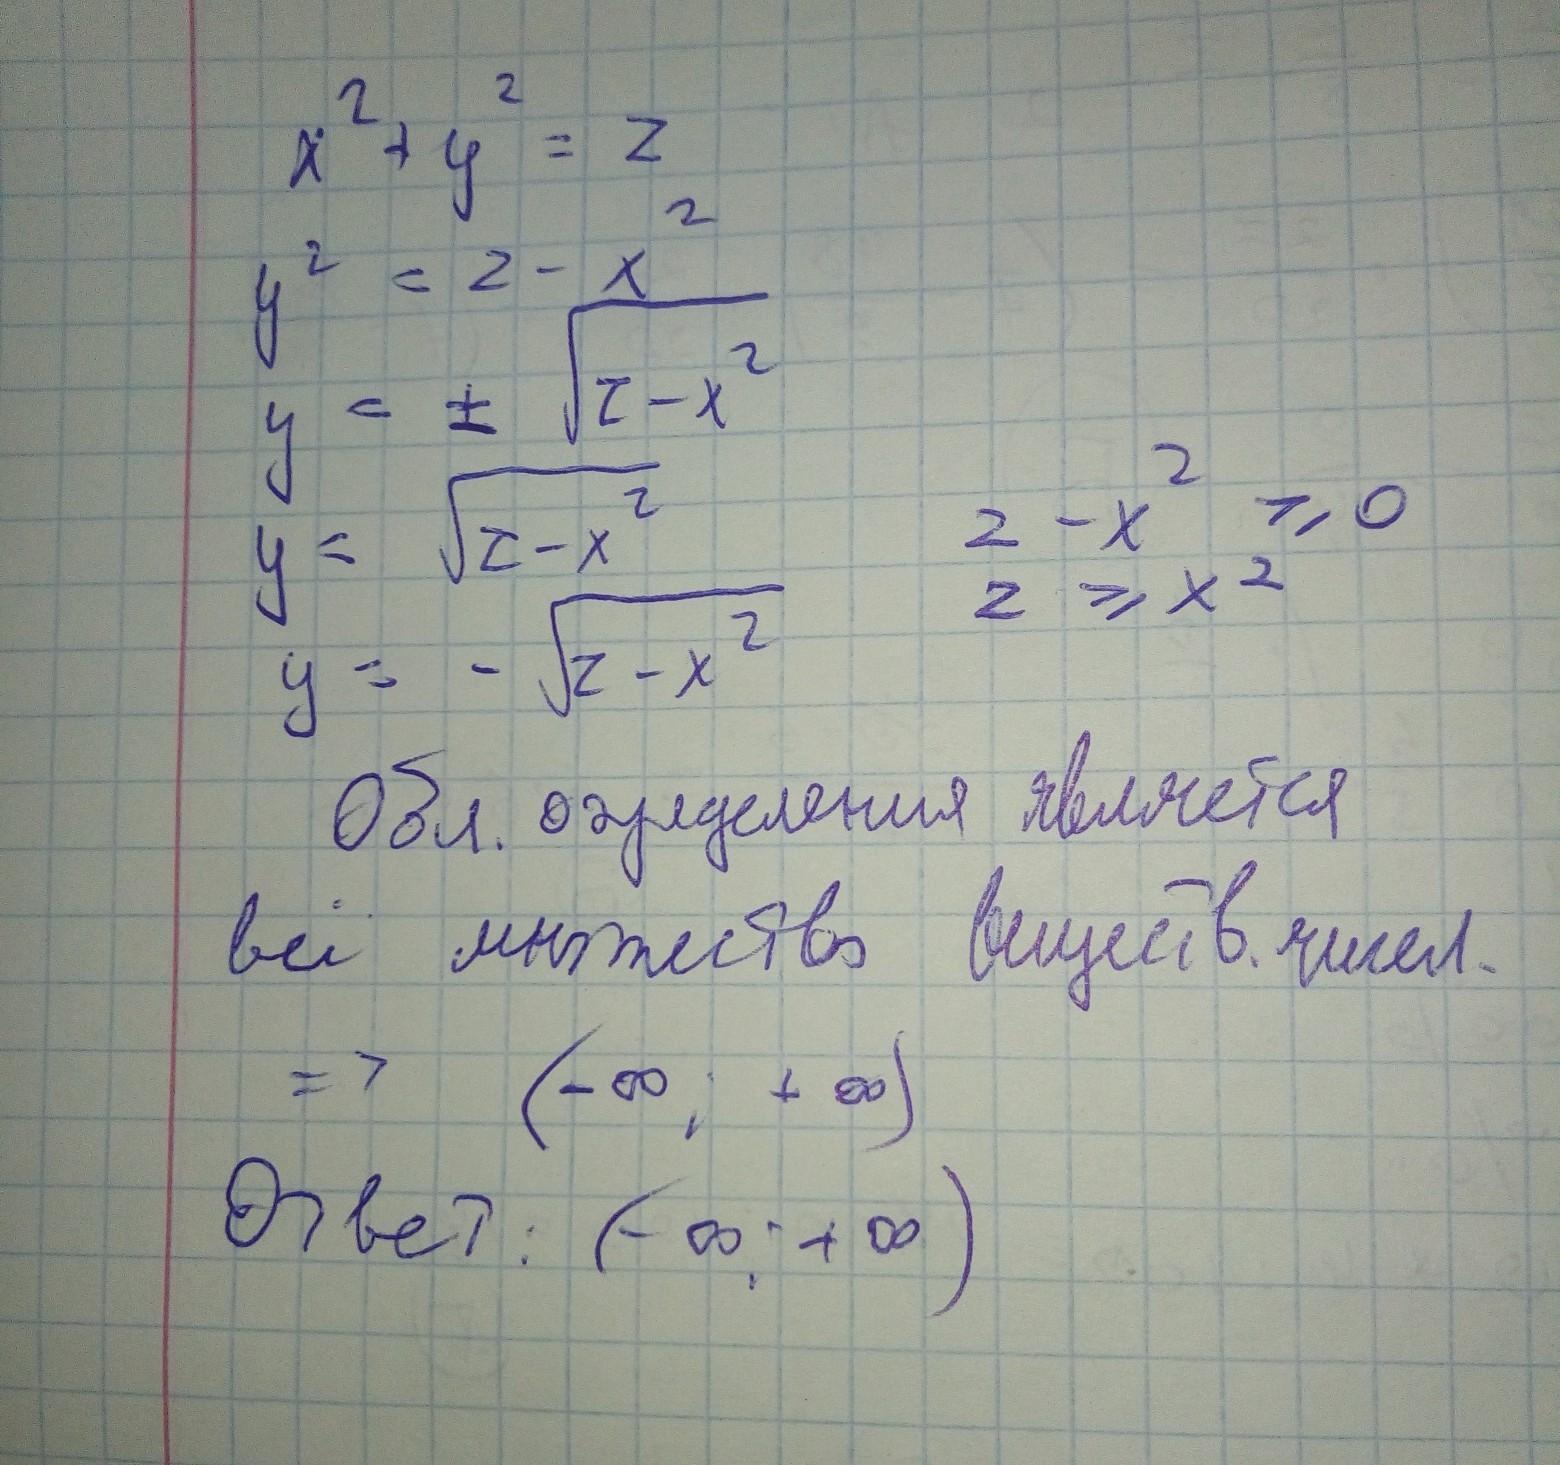 x² + y² = z
y² = z - x²
y = ± √z - x²
y = √z - x²
z - x² ≥ 0
z ≥ x²
y = - √z - x²
Обл. определения является
всё множество веществ. чисел.
=> (-∞; +∞)
Ответ: (-∞; +∞)